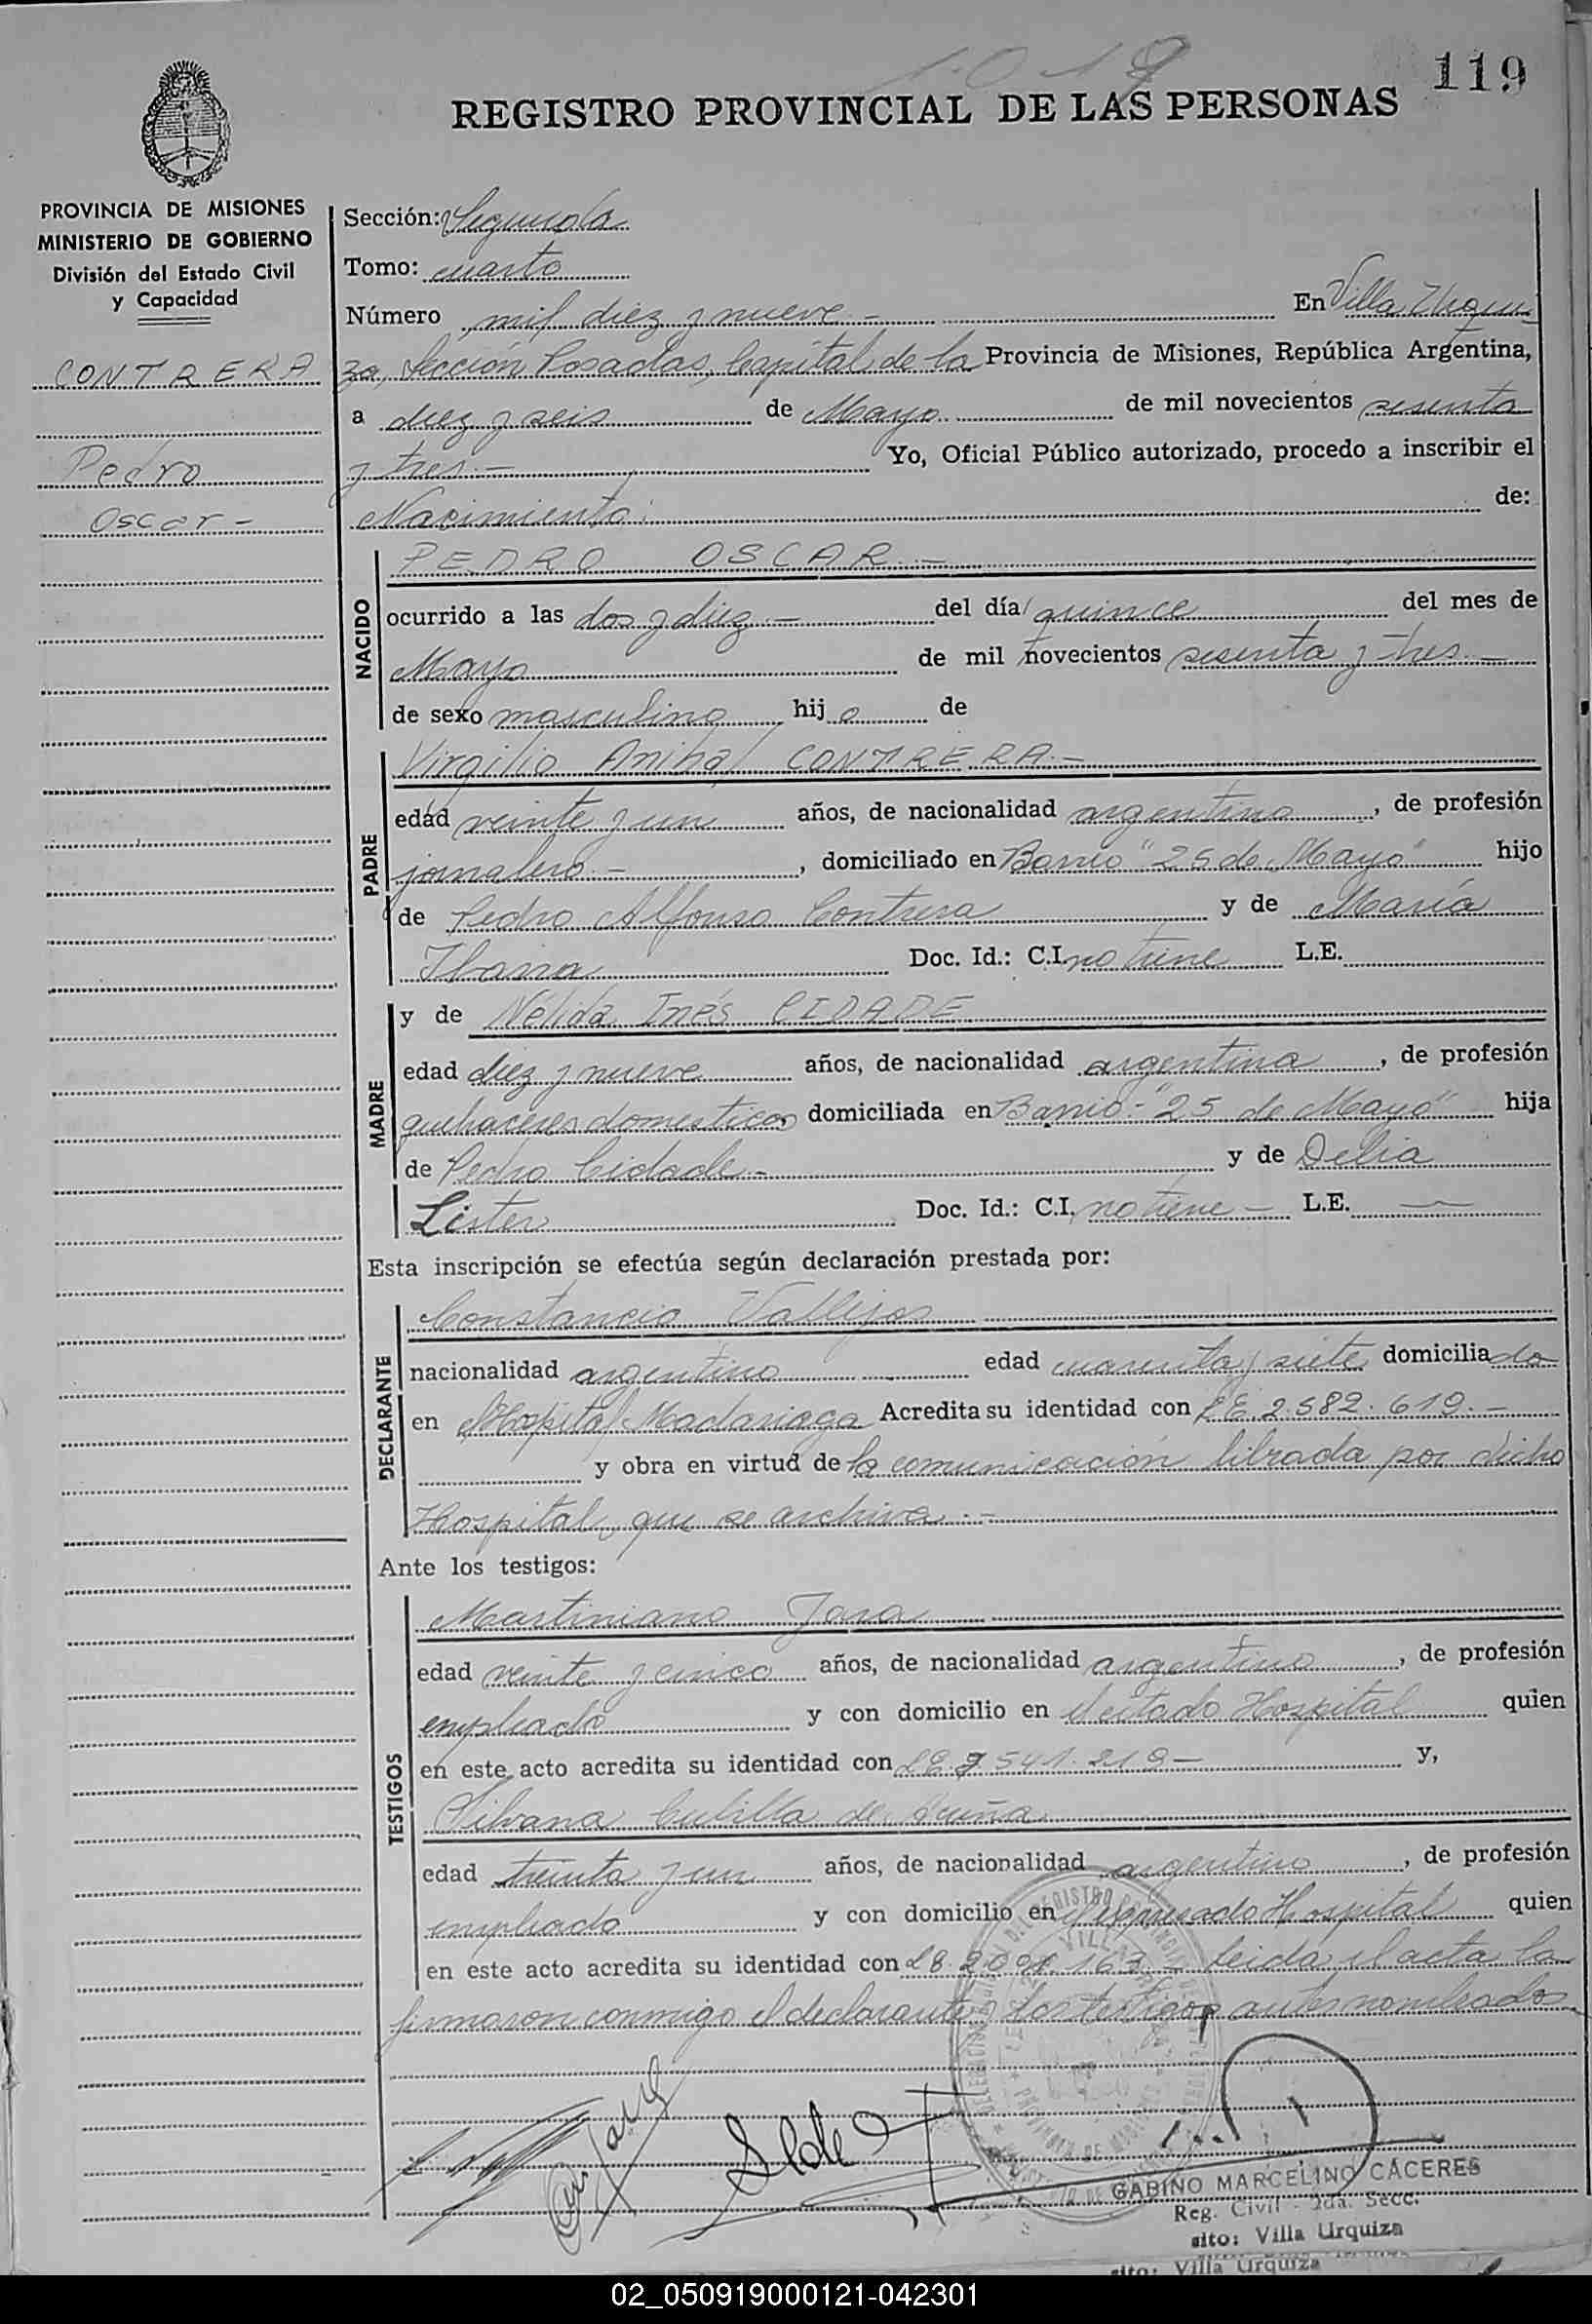 1019
119
REGISTRO PROVINCIAL DE LAS PERSONAS
PROVINCIA DE MISIONES
MINISTERIO DE GOBIERNO
División del Estado Civil
y Capacidad
CONTRERA
Pedro
Oscar -
Sección: Segunda
Tomo: cuarto
Número mil diez y nueve - En Villa Urqui
za, Sección Posadas, Capital de la Provincia de Misiones, República Argentina,
a diez y seis de Mayo de mil novecientos sesenta
y tres.- Yo, Oficial Público autorizado, procedo a inscribir el
Nacimiento de:
NACIDO
PEDRO OSCAR.-
ocurrido a las dos y diez.- del día quince del mes de
Mayo de mil novecientos sesenta y tres.-
de sexo masculino hijo de
PADRE
Virgilio Anibal CONTRERA.-
edad veinte y un años, de nacionalidad argentino, de profesión
jornalero.-, domiciliado en Barrio "25 de Mayo" hijo
de Pedro Alfonso Contrera y de María
Doc. Id.: C.I. no tiene L.E.
MADRE
y de Nélida Inés CIDADE
edad diez y nueve años, de nacionalidad argentina, de profesión
quehaceres domesticos domiciliada en Barrio - "25 de Mayo" hija
de Pedro Cidade - y de Delia
Doc. Id.: C.I. no tiene - L.E. —
Esta inscripción se efectúa según declaración prestada por:
DECLARANTE
Constancio Vallejos
nacionalidad argentino edad cuarenta y siete domiciliado
en Hospital Madariaga Acredita su identidad con L.E. 2.582.619.-
y obra en virtud de la comunicación librada por dicho
Hospital, que se archiva.-
Ante los testigos:
TESTIGOS
Martiniano Jara
edad veinte y cinco años, de nacionalidad argentino, de profesión
empleado y con domicilio en el citado Hospital quien
en este acto acredita su identidad con L.E. 7.541.219- y,
Silvana Cubilla de Acuña
edad treinta y un años, de nacionalidad argentino, de profesión
empleada y con domicilio en el expresado Hospital quien
en este acto acredita su identidad con Leida el acta la
firmaron conmigo el declarante y los testigos antes nombrados
GABINO MARCELINO CACERES
Reg. Civil - 2da. Secc.
sito: Villa Urquiza
sito: Villa Urquiza
02_050919000121-042301